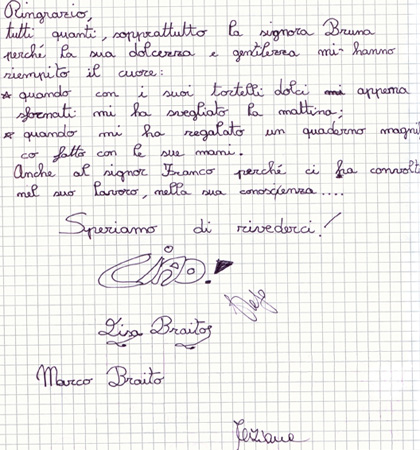 Ringrazio,
tutti quanti, soprattutto la signora Bruna
perché la sua dolcezza e gentilezza mi hanno
riempito il cuore:
* quando con i suoi tortelli dolci appena
sfornati mi ha svegliato la mattina;
* quando mi ha regalato un quaderno magnifi
co fatto con le sue mani.
Anche al signor Franco perché ci ha convolt
nel suo lavoro, nella sua conoscienza....
Speriamo di rivederci!
CIAO!
Lisa Braito
Marco Braito
Tiziana